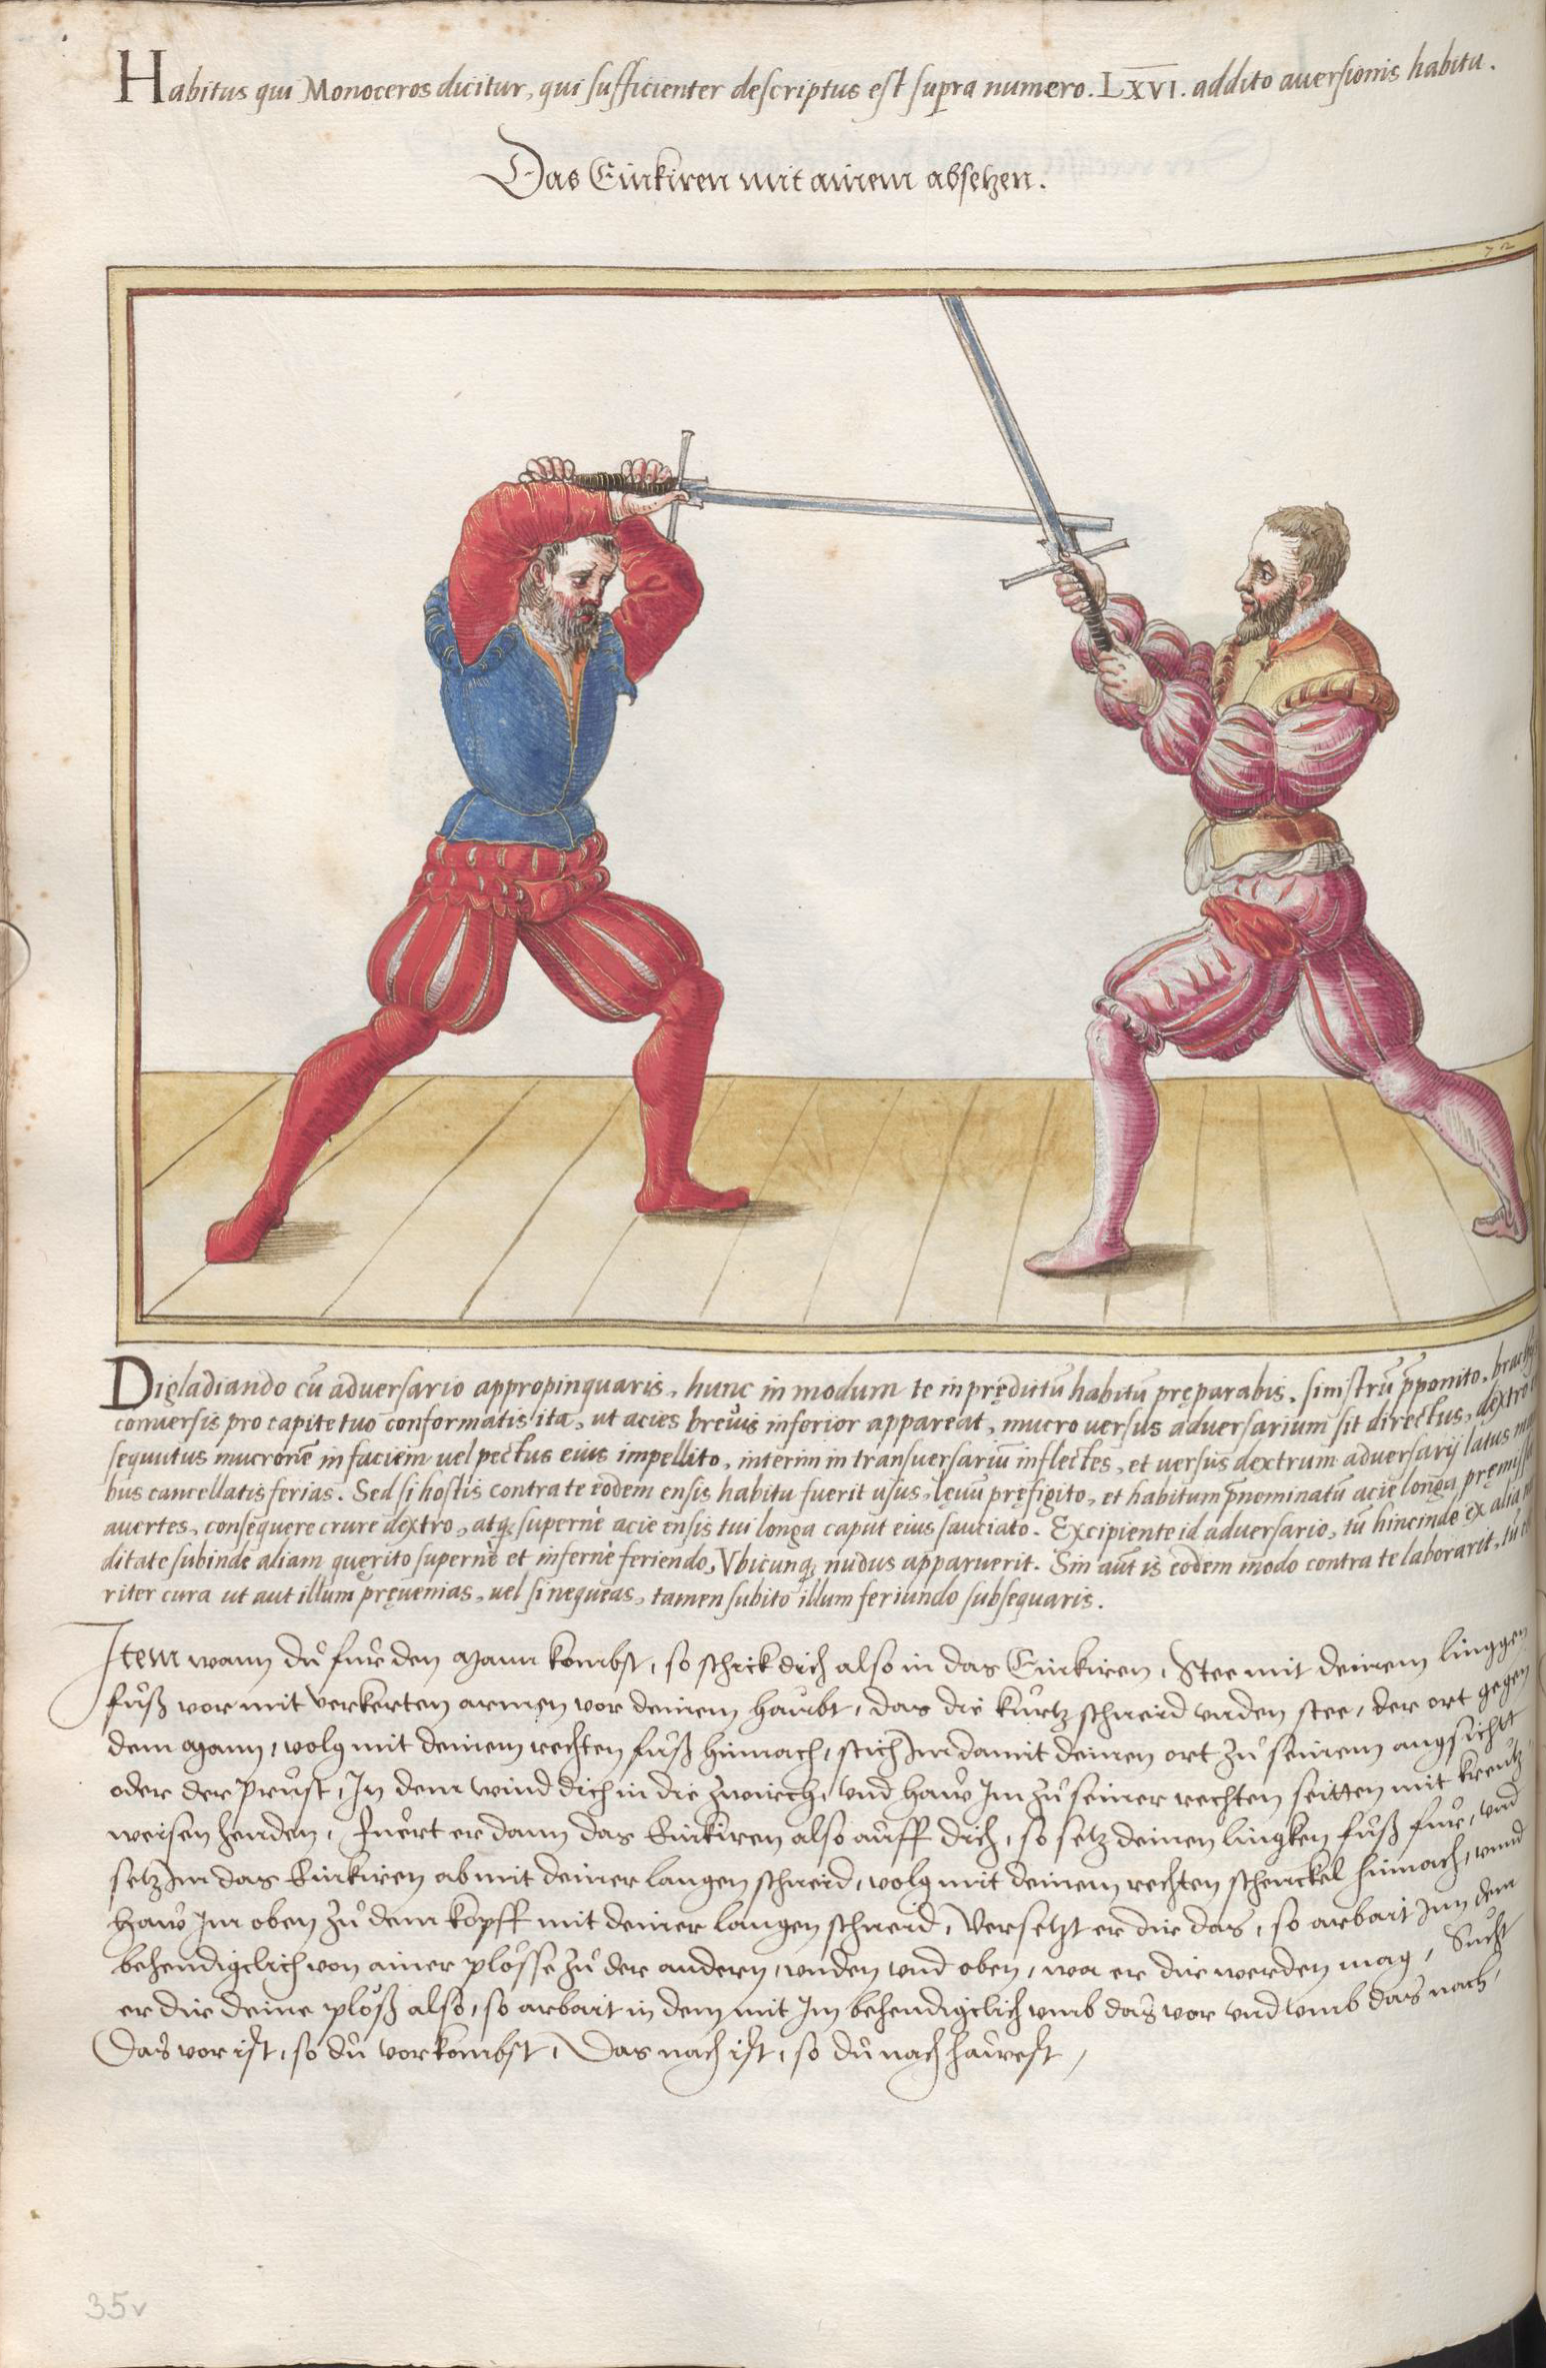 Habitus qui Monoceros dicitur, qui sufficienter descriptus est supra numero. LXXVI. addito auersionis habitu.
Das Einkiren mit ainem absetzen.
72
Digladiando cū aduersario appropinquaris, hunc in modum te in prędictū habitū pręparabis. sinistrū p̄ponito, brachijs
conuersis pro capite tuo conformatis ita, ut acies breuis inferior appareat, mucro uersus aduersarium sit directus, dextro
sequutus mucronē in faciem uel pectus eius impellito, interim in transuersariū inflectes, et uersus dextrum aduersarij latus
bus cancellatis ferias. Sed si hostis contra te eodem ensis habitu fuerit usus, lęuū pręfigito, et habitum p̄nominatū acie longa
auertes, consequere crure dextro, atq; supernè acie ensis tui longa caput eius sauciato. Excipiente id aduersario, tū hincinde ex alia
ditate subinde aliam quęrito supernè et infernè feriendo, Vbicunq; nudus apparuerit. Sin aūt is eodem modo contra te laborarit, tu
riter cura ut aut illum pręuenias, uel si nequeas, tamen subito illum feriundo subsequaris.
Item wann dů für den Mann kombst, so schick dich also in das Einkiren, Stee mit deinem linggen
fůß vor mit verkerten armen vor deinem haubt, das die kurtz schneid unden stee, der ort gegen
dem Mann, volg mit deinem rechten fůß hinnach, stich Im damit deinen ort zů seinem angsicht
oder der prust, In dem wind dich in die zwirch, und haw Im zů seiner rechten seitten mit kreutz
weisen henden, Fuert er dann das Einkiren also auff dich, so setz deinen lingken fůß für, und
setz Im das Einkiren ab mit deiner langen schneid, volg mit deinem rechten schenckel hinnach, unnd
haw Im oben zů dem kopff mit deiner langen schneid, Versetzt er dir das, so arbait Inn dem
behendigclich von ainer plösse zů der andern, unden und oben, wa er dir werden mag, Sucht
er dir deine plöß also, so arbait in dem mit Im behendigclich umb das vor und umb das nach,
Das vor ist, so dů vorkombst, Das nach ist, so dů nach hawest,
35v